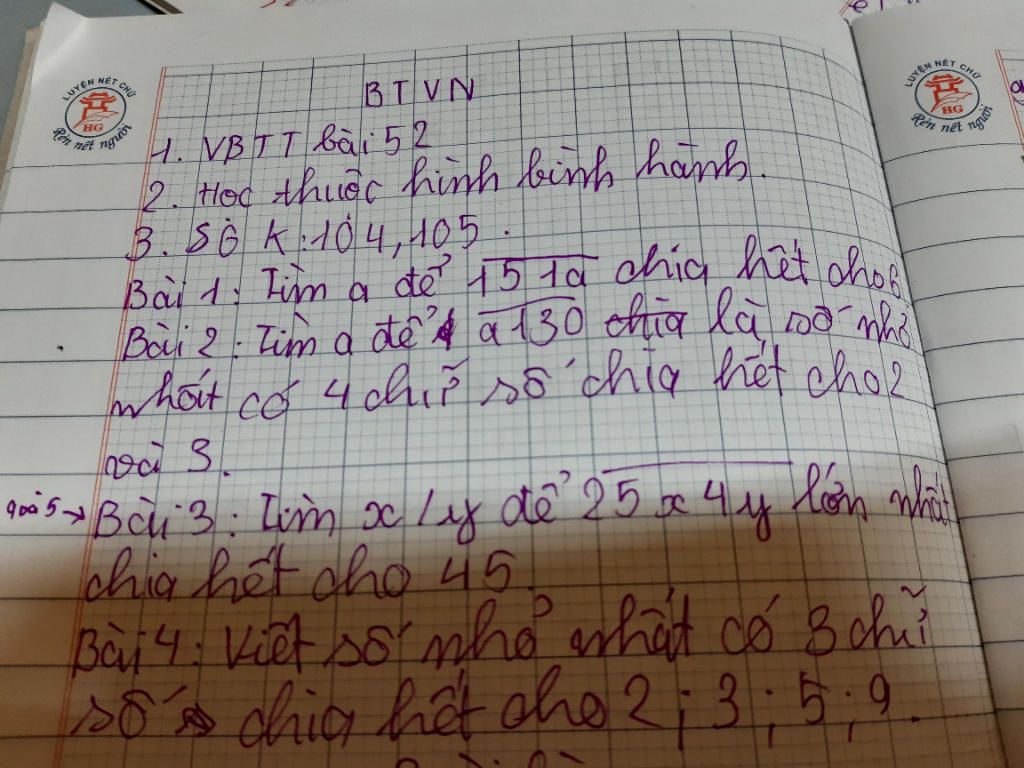 LUYỆN NÉT CHỮ
HG
Rèn nét người
LUYỆN NÉT CHỮ
HG
Rèn nét người
BTVN
1. VBTT bài 52
2. Học thuộc hình bình hành.
3. Sổ K: 104, 105.
Bài 1: Tìm a để 151a chia hết cho 6
Bài 2: Tìm a để a130 chia là số nhỏ
nhất có 4 chữ số chia hết cho 2
và 3.
9 và 5 → Bài 3: Tìm x, y để 25x4y lớn nhất
chia hết cho 45.
Bài 4: Viết số nhỏ nhất có 3 chữ
số chia hết cho 2; 3; 5; 9.